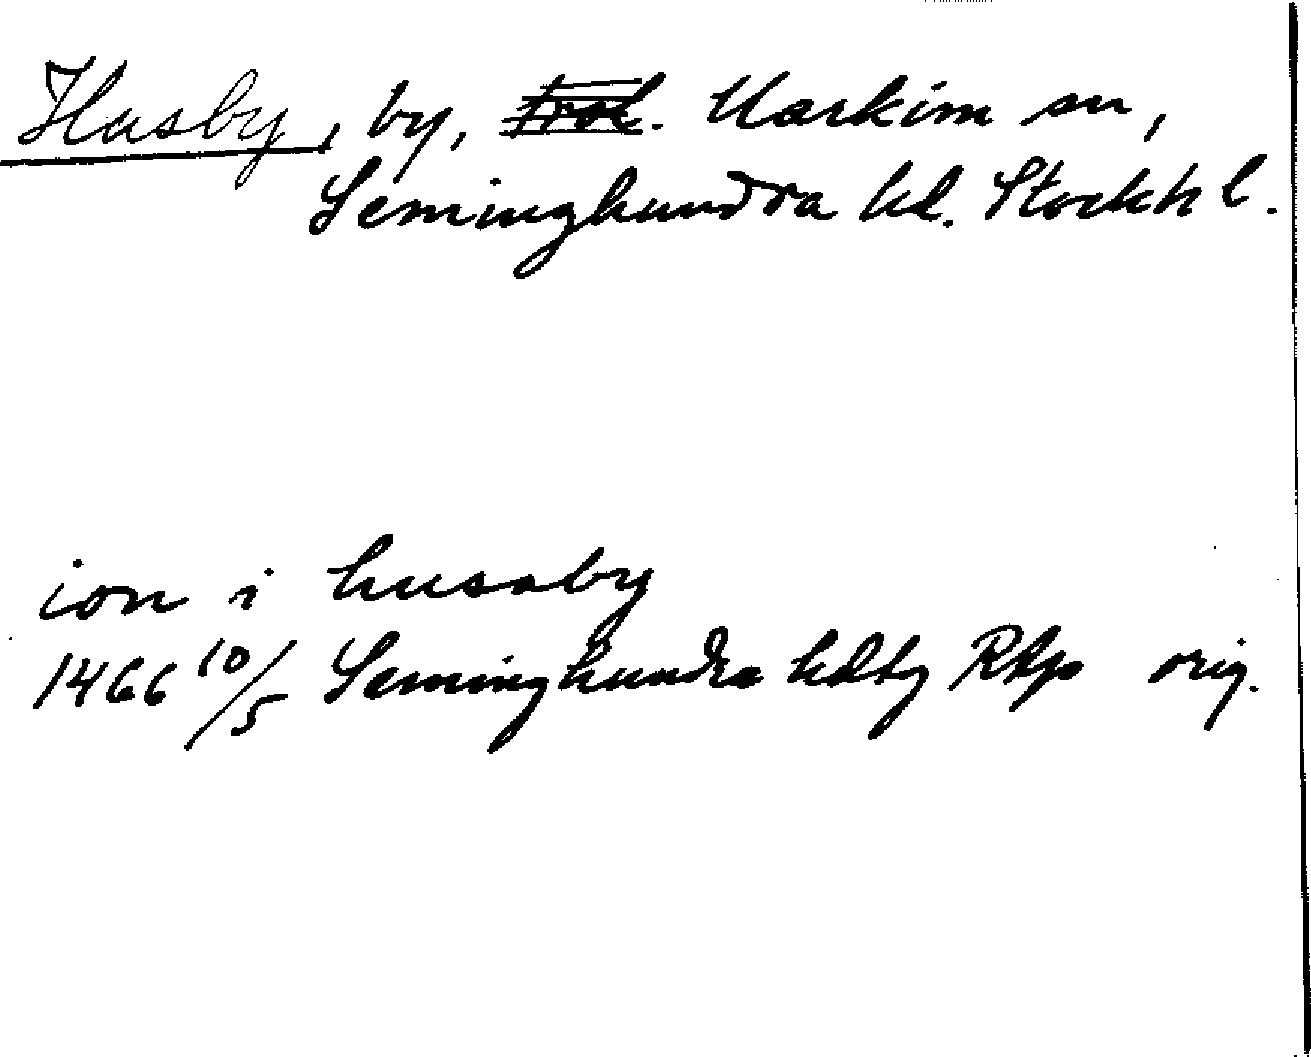 Husby, by, Markim sn,
Seminghundra hd. Stockh l.
ion i husaby
1466 10/5 Seminghundra hdtg Rkp orig.